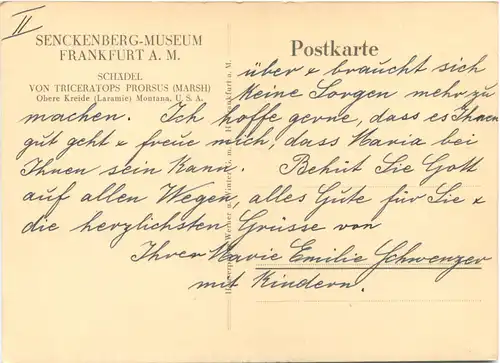 II
SENCKENBERG-MUSEUM
FRANKFURT A. M.
SCHÄDEL
VON TRICERATOPS PRORSUS (MARSH)
Obere Kreide (Laramie) Montana, U. S. A.
Postkarte
über & braucht sich
keine Sorgen mehr zu
machen. Ich hoffe gerne, dass es Ihnen
gut geht & freue mich, dass Maria bei
Ihnen sein kann. Behüt Sie Gott
auf allen Wegen, alles Gute für Sie &
die herzlichsten Grüsse von
Ihrer Marie Emilie Schwenzer
mit Kindern.
Werner u. Winter G. m. b. H. Frankfurt a. M.